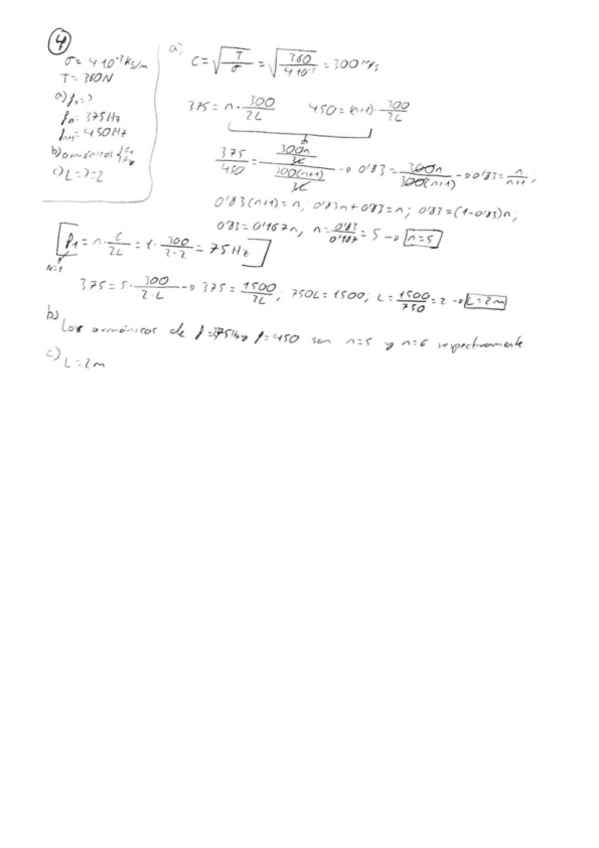 4
σ = 4·10⁻³ kg/m
T = 360N
a) f₁ = ?
fₙ = 375Hz
fₙ₊₁ = 450Hz
b) armónicos
c) L = ? = 2
a) C = √(T/σ) = √(360/4·10⁻³) = 300 m/s
375 = n · 300/2L    450 = (n+1) · 300/2L
375/450 = (300n/2L)/(300(n+1)/2L) → 0'83 = 300n/300(n+1) → 0'83 = n/n+1 ;
0'83(n+1) = n, 0'83n + 0'83 = n; 0'83 = (1-0'83)n,
0'83 = 0'167n, n = 0'83/0'167 = 5 → n=5
f₁ = n · C/2L = 1 · 300/2·2 = 75 Hz
n=1
375 = 5 · 300/2·L → 375 = 1500/2L ; 750L = 1500; L = 1500/750 = 2 → L = 2m
b) Los armónicos de f=375Hz y f=450 son n=5 y n=6 respectivamente
c) L = 2m